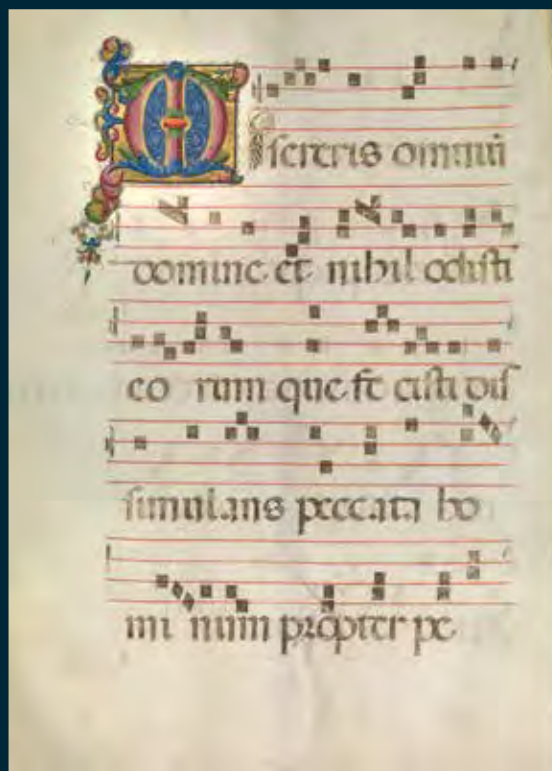 Misereris omniū
domine et nihil odisti
eo rum que fe cisti dis
simulans peccata ho
mi num propter pe